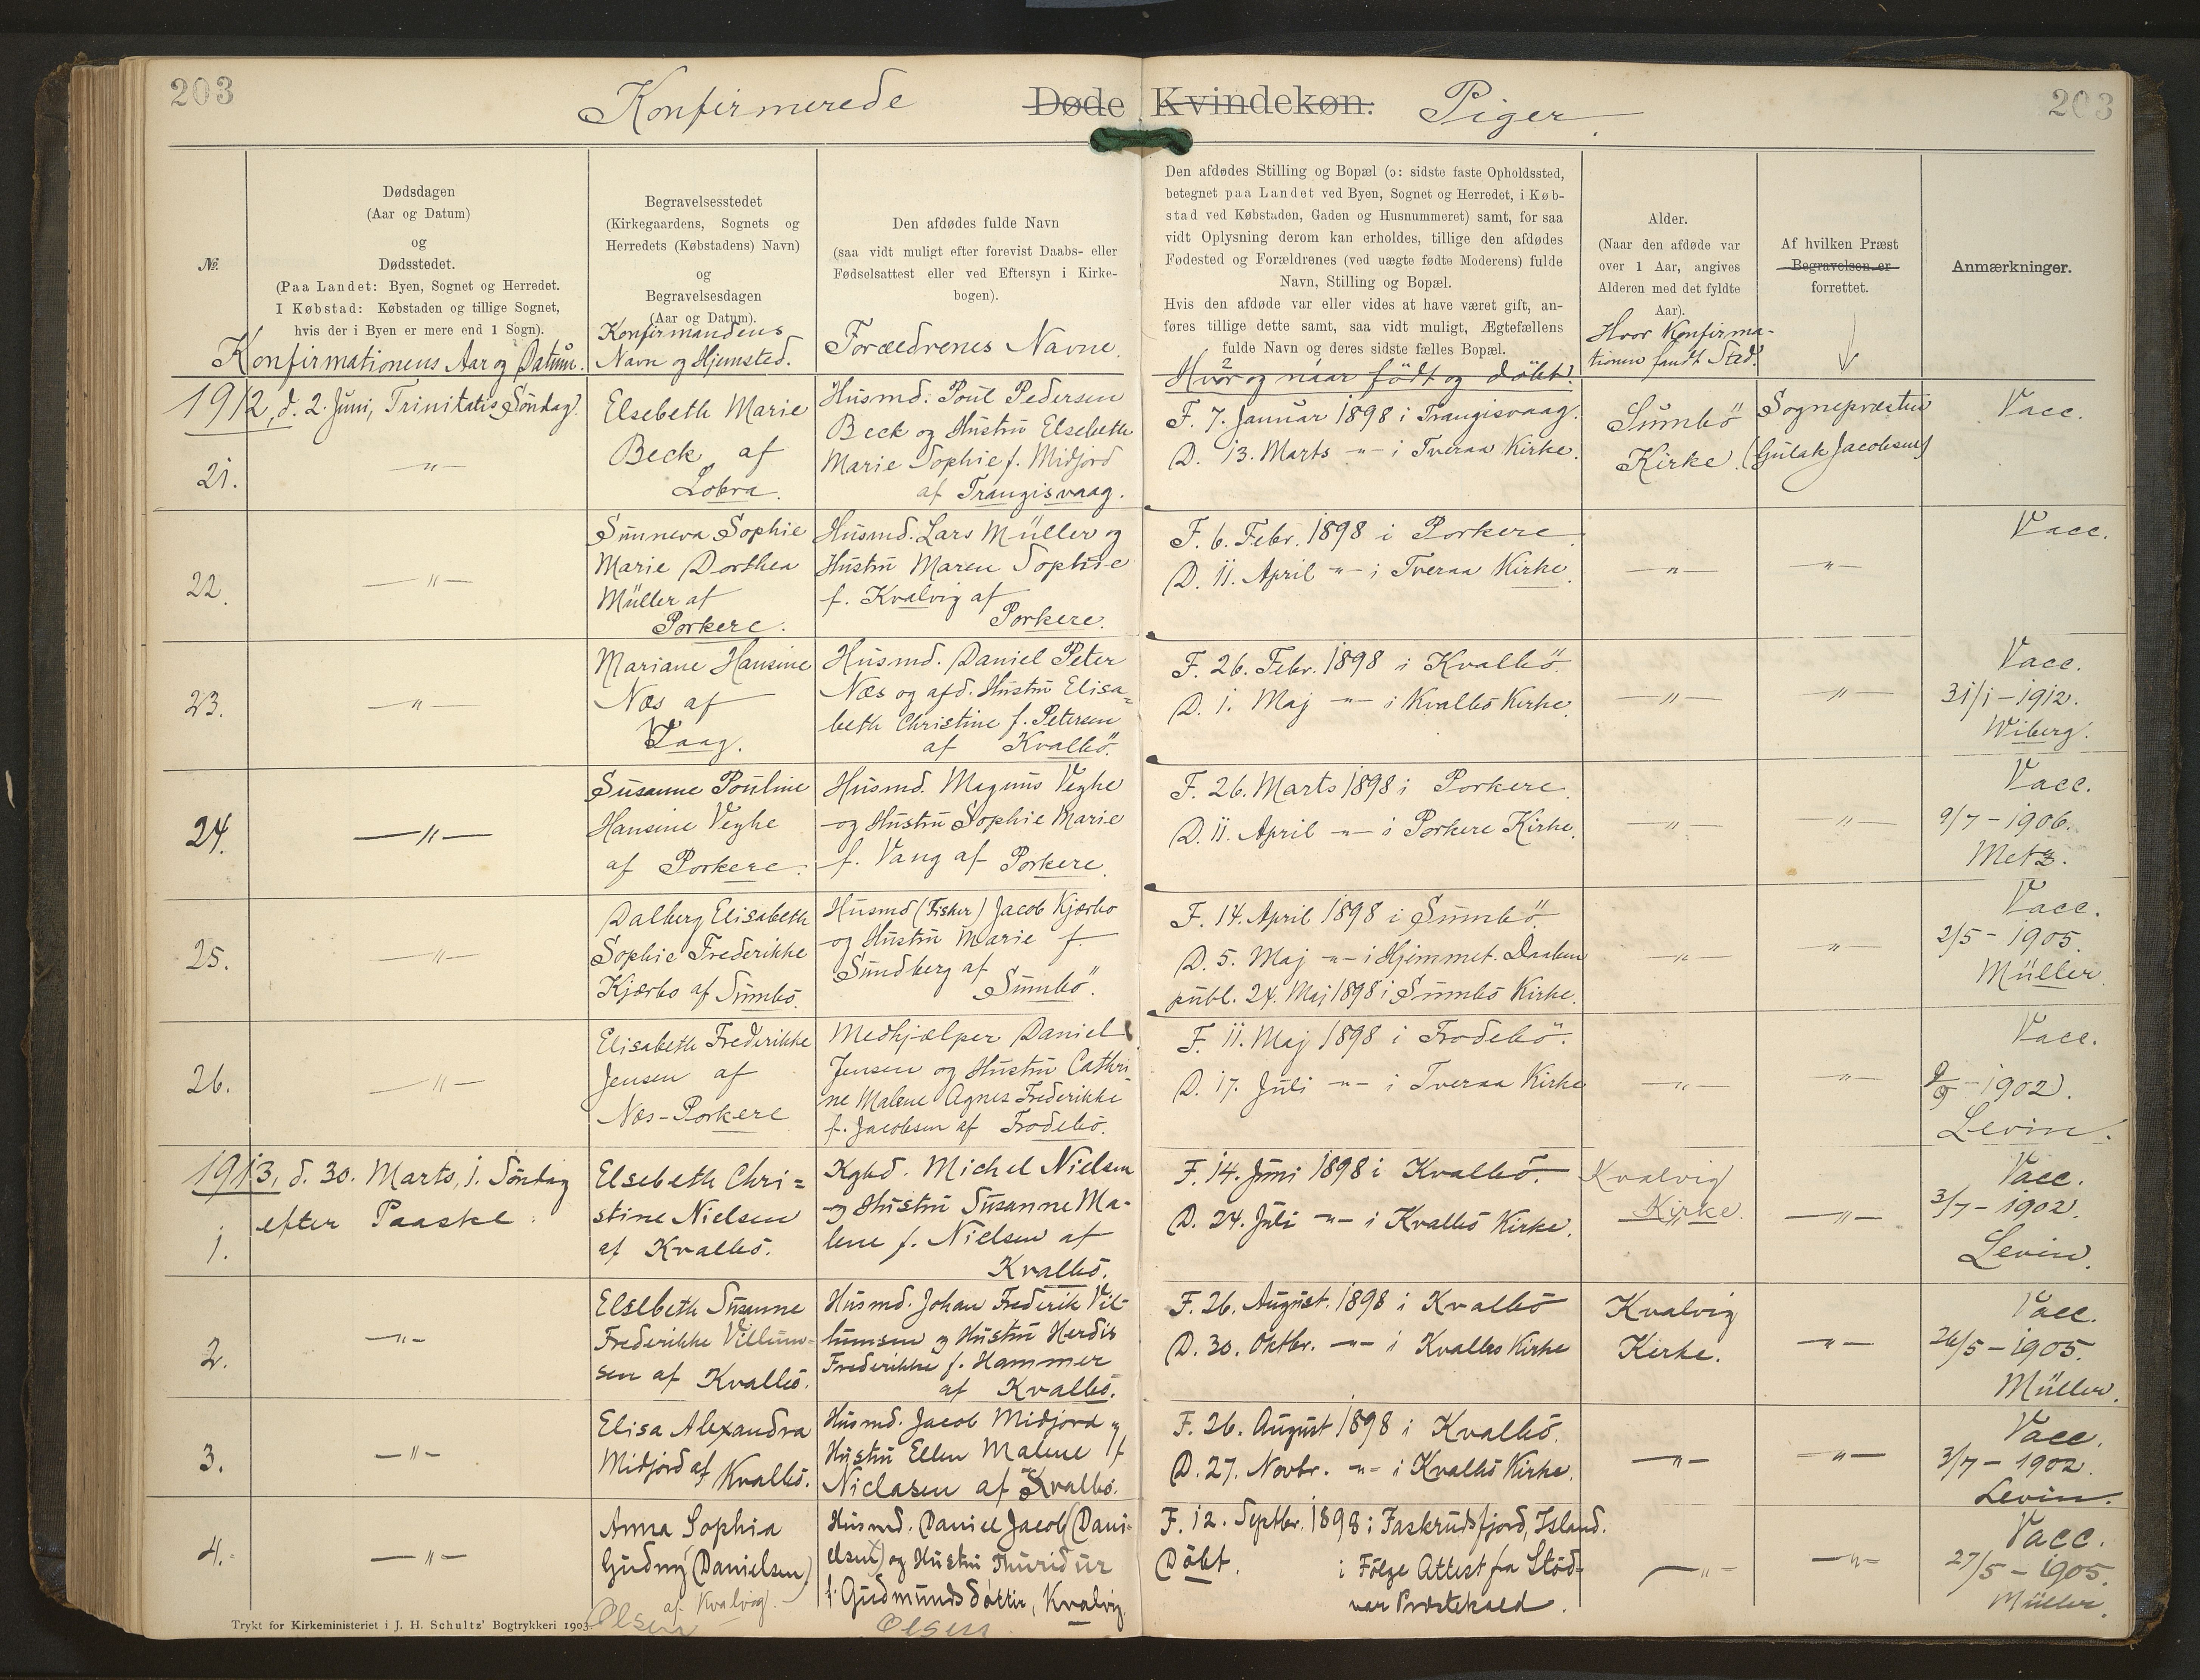 203
203
Konfirmerede Døde Kvindekøn. Piger.
№
Dødsdagen
(Aar og Datum)
og
Dødsstedet.
(Paa Landet: Byen, Sognet og Herredet.
I Købstad: Købstaden og tillige Sognet,
hvis der i Byen er mere end 1 Sogn).
Konfirmationens Aar og Datum.
Begravelsesstedet
(Kirkegaardens, Sognets og
Herredets (Købstadens) Navn)
og
Begravelsesdagen
(Aar og Datum).
Konfirmandens
Navn og Hjemsted.
Den afdødes fulde Navn
(saa vidt muligt efter forevist Daabs- eller
Fødselsattest eller ved Eftersyn i Kirke-
bogen).
Forældrenes Navne.
Den afdødes Stilling og Bopæl (ɔ: sidste faste Opholdssted,
betegnet paa Landet ved Byen, Sognet og Herredet, i Køb-
stad ved Købstaden, Gaden og Husnummeret) samt, for saa
vidt Oplysning derom kan erholdes, tillige den afdødes
Fødested og Forældrenes (ved uægte fødte Moderens) fulde
Navn, Stilling og Bopæl.
Hvis den afdøde var eller vides at have været gift, an-
føres tillige dette samt, saa vidt muligt, Ægtefællens
fulde Navn og deres sidste fælles Bopæl.
Hvor og naar født og døbt?
Alder.
(Naar den afdøde var
over 1 Aar, angives
Alderen med det fyldte
Aar).
Hvor Konfirma-
tionen fandt Sted?
Af hvilken Præst
Begravelsen er
forrettet.
Anmærkninger.
1912, d. 2. Juni, Trinitatis Søndag.
21.
-"-
Elsebeth Marie
Beck af
Lobra.
Husmd. Poul Pedersen
Beck og Hustru Elsebeth
Marie Sophie f. Midjord
af Trangisvaag.
F. 7. Januar 1898 i Trangisvaag.
D. 13. Marts -"- i Tveraa Kirke.
Sumbö
Kirke.
Sognepræsten
(Gulak Jacobsen)
Vacc.
22.
-"-
Sunneva Sophie
Marie Dorthea
Müller af
Porkere.
Husmd. Lars Müller og
Hustru Maren Sophie
f. Kvalvig af
Porkere.
F. 6. Febr. 1898 i Porkere.
D. 11. April -"- i Tveraa Kirke.
-"-
-"-
Vacc.
23.
-"-
Mariane Hansine
Næs af
Vaag.
Husmd. Daniel Peter
Næs og afd. Hustru Elisa=
beth Christine f. Petersen
af Kvalbö.
F. 26. Febr. 1898 i Kvalbö.
D. 1. Maj -"- i Kvalbö Kirke.
-"-
-"-
Vacc.
31/1-1912.
Wiberg.
24.
-"-
Susanne Pouline
Hansine Veyhe
af Porkere.
Husmd. Magnus Veyhe
og Hustru Sophie Marie
f. Vang af Porkere.
F. 26. Marts 1898 i Porkere.
D. 11. April -"- i Porkere Kirke.
-"-
-"-
Vacc.
9/7-1906.
Metz.
25.
-"-
Dalberg Elisabeth
Sophie Frederikke
Kjærbo af Sumbö.
Husmd (Fisker) Jacob Kjærbo
og Hustru Marie f.
Sundberg af
Sumbö.
F. 14. April 1898 i Sumbö.
D. 5. Maj -"- i Hjemmet. Daaben
publ. 24. Maj 1898 i Sumbö Kirke.
-"-
-"-
Vacc.
2/5-1905.
Müller.
26.
-"-
Elisabeth Frederikke
Jensen af
Næs-Porkere
Medhjælper Daniel
Jensen og Hustru Cathri-
ne Malene Agnes Frederikke
f. Jacobsen af Frodebö.
F. 11. Maj 1898 i Frodebö.
D. 17. Juli -"- i Tveraa Kirke
-"-
-"-
Vacc.
9/9-1902.
Levin.
1913, d. 30. Marts, 1. Søndag
efter Paaske.
1.
Elsebeth Chri=
stine Nielsen
af Kvalbö.
Kgbd. Michel Nielsen
og Hustru Susanne Ma-
lene f. Nielsen af
Kvalbö.
F. 14. Juni 1898 i Kvalbö.
D. 24. Juli -"- i Kvalbö Kirke.
Kvalvig
Kirke.
-"-
Vacc.
3/7-1902.
Levin.
2.
-"-
Elsebeth Susanne
Frederikke Villum-
sen af Kvalbö.
Husmd. Johan Frederik Vil-
lumsen og Hustru Herdis
Frederikke f. Hammer
af Kvalbö.
F. 26. August 1898 i Kvalbö
D. 30. Oktbr. -"- i Kvalbö Kirke
Kvalvig
Kirke.
-"-
Vacc.
26/5-1905.
Müller.
3.
-"-
Elisa Alexandra
Midjord af Kvalbö.
Husmd. Jacob Midjord og
Hustru Ellen Malene f.
Niclasen af Kvalbö.
F. 26. August 1898 i Kvalbö.
D. 27. Novbr. -"- i Kvalbö Kirke.
-"-
-"-
Vacc.
3/7-1902.
Levin.
4.
-"-
Anna Sophia
Gudny (Danielsen)
af Kvalvig.
Olsen
Husmd. Daniel Jacob (Dani-
elsen) og Hustru Thuridur
f. Gudmundsdóttir, Kvalvig.
Olsen
F. 12. Septbr. 1898 i Faskrudsfjord, Island.
Döbt. i Følge Attest fra Stöd-
var Præstekald.
-"-
-"-
Vacc.
27/5-1905.
Müller.
Trykt for Kirkeministeriet i J. H. Schultz' Bogtrykkeri 1903.